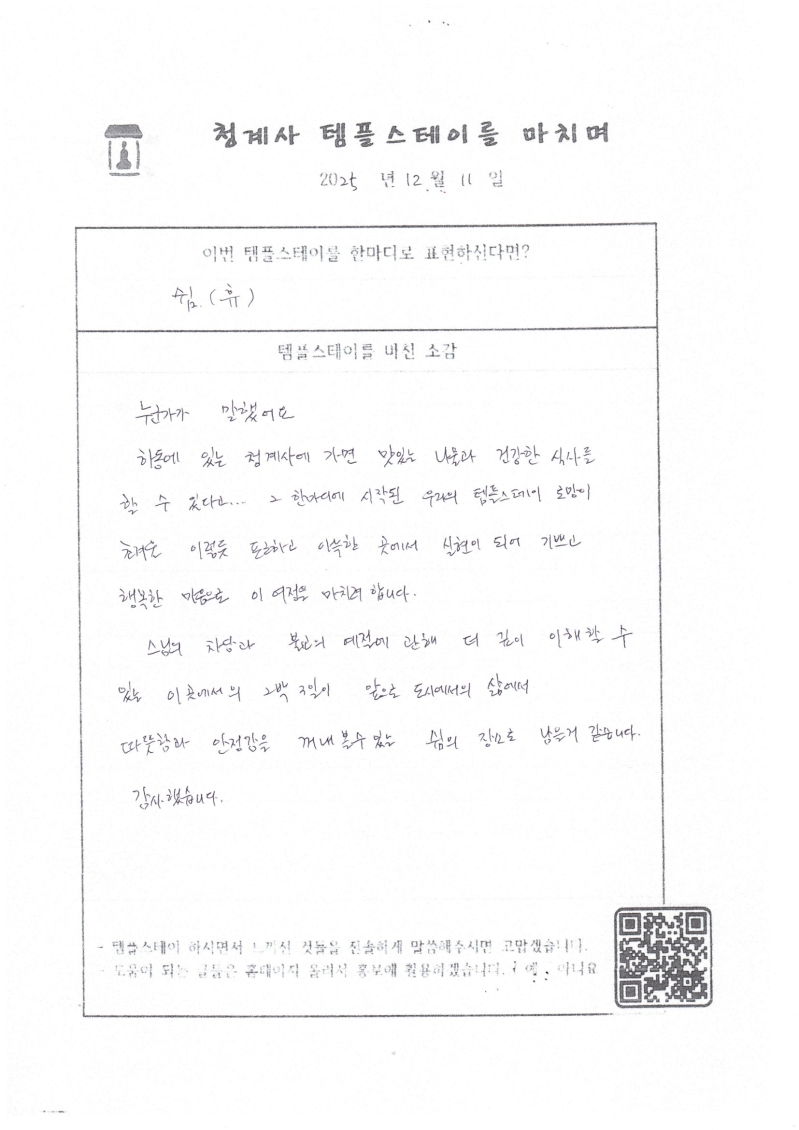 청계사 템플스테이를 마치며
2025 년 12 월 11 일
이번 템플스테이를 한마디로 표현하신다면?
쉼. (휴)
템플스테이를 마친 소감
누군가가 말했어요
하동에 있는 청계사에 가면 맛있는 나물과 건강한 식사를
할 수 있다고... 그 한마디에 시작된 우리의 템플스테이 로망이
이렇듯 포근하고 아늑한 곳에서 실현이 되어 기쁘고
행복한 마음으로 이 여정을 마치려 합니다.
스님의 차담과 불교의 예절에 관해 더 깊이 이해할 수
있는 이곳에서의 2박 3일이 앞으로 도시에서의 삶에서
따뜻함과 안정감을 꺼내 볼 수 있는 쉼의 장소로 남은거 같습니다.
감사했습니다.
- 템플스테이 하시면서 느끼신 것들을 진솔하게 말씀해주시면 고맙겠습니다.
- 도움이 되는 글들은 홈페이지 올려서 홍보에 활용하겠습니다. ( 예 , 아니요